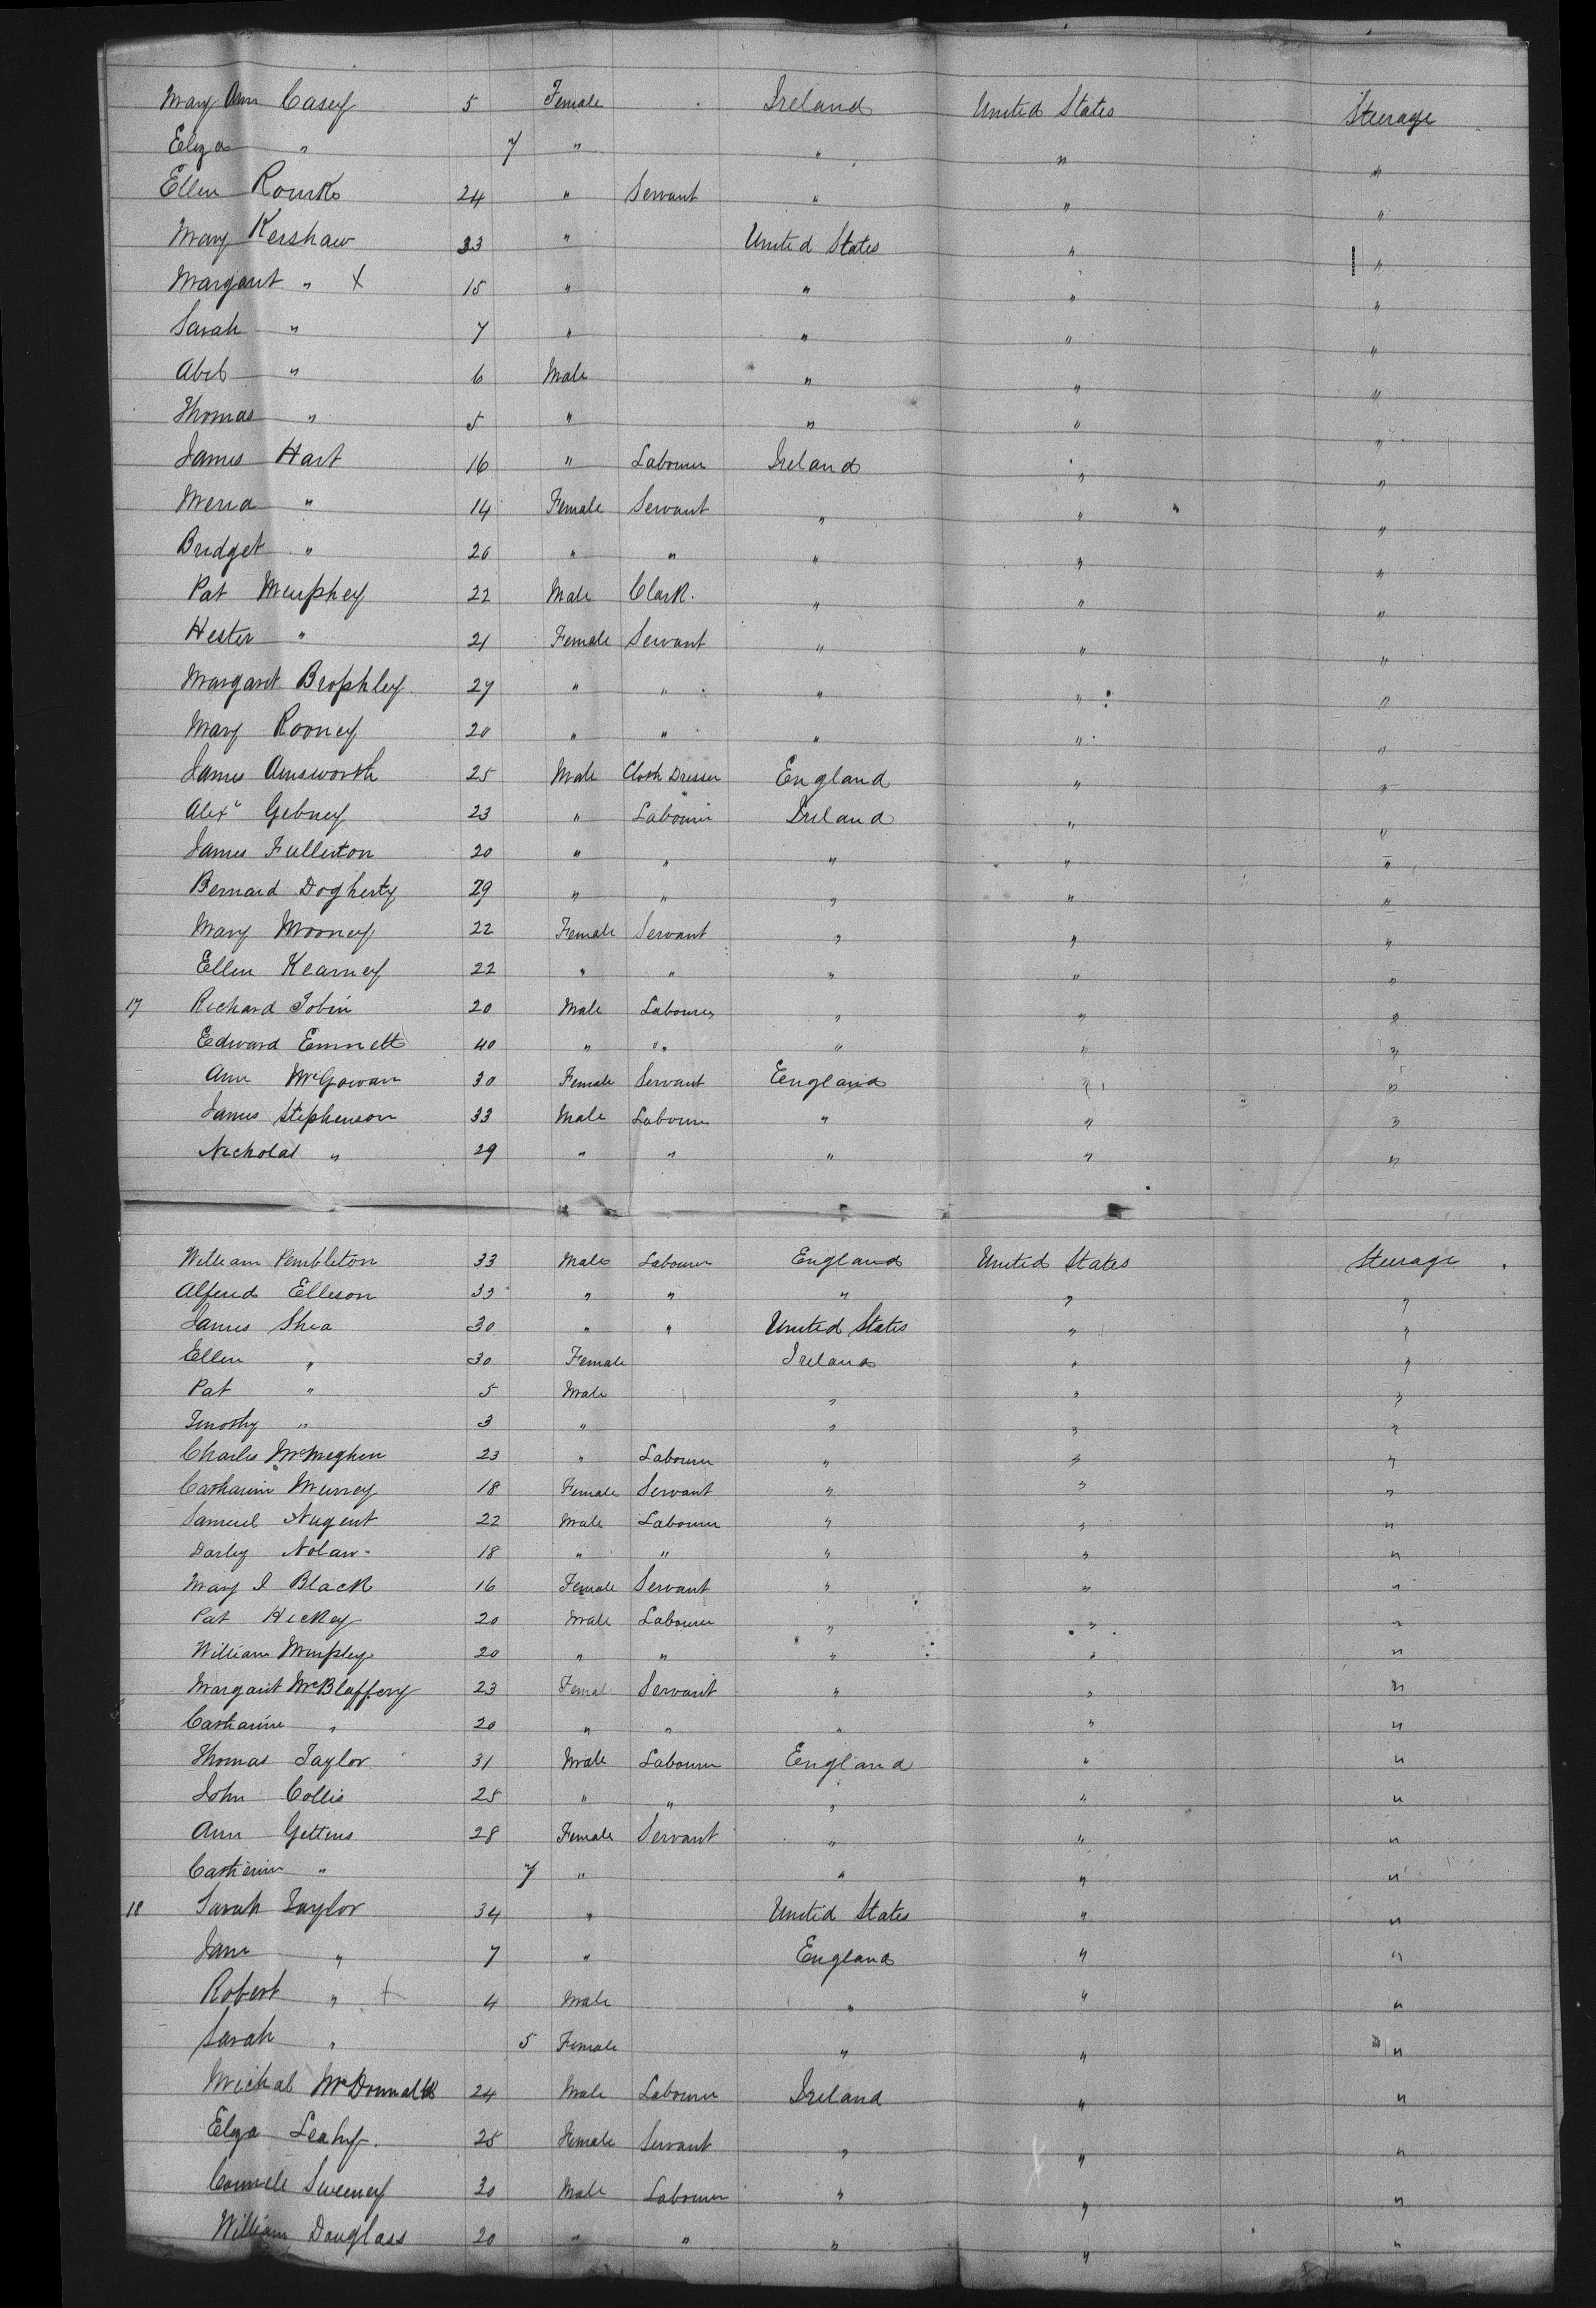 Mary Ann Casey 5 Female Ireland United States Steerage
Eliza " 7 " " " "
Ellen Rourke 24 " Servant " " "
Mary Kershaw 33 " United States " "
Margaret " X 15 " " " "
Sarah " 7 " " " "
Abel " 6 Male " " "
Thomas " 5 " " " "
James Hart 16 " Labourer Ireland " "
" 14 Female Servant " " "
Bridget " 20 " " " " "
Pat Murphey 22 Male Clark. " " "
Hester " 21 Female Servant " " "
Margaret Brophley 27 " " " " "
Mary Rooney 20 " " " " "
James Ainsworth 25 Male Cloth Dresser England " "
Alexr Gebney 23 " Labourer Ireland " "
James Fullerton 20 " " " " "
Bernard Dogherty 29 " " " " "
Mary Mooney 22 Female Servant " " "
Ellen Kearney 22 " " " " "
17 Richard Tobin 20 Male Labourer " " "
Edward Emmett 40 " " " " "
Ann McGowan 30 Female Servant England " "
James Stephenson 33 Male Labourer " " "
Nicholas " 29 " " " " "
William Pembleton 33 Male Labourer England United States Steerage
Alfred Ellison 33 " " " " "
James Shea 30 " " United States " "
Ellen " 30 Female Ireland " "
Pat " 5 Male " " "
Timothy " 3 " " " "
Charles McMeghen 23 " Labourer " " "
Catharine Murrey 18 Female Servant " " "
Samuel Nugent 22 Male Labourer " " "
Darby Nolan 18 " " " " "
Mary J Black 16 Female Servant " " "
Pat Hickey 20 Male Labourer " " "
William Murphey 20 " " " " "
Margaret McBlaffery 23 Female Servant " " "
Catharine " 20 " " " " "
Thomas Taylor 31 Male Labourer England " "
John Collis 25 " " " " "
Ann Gettins 28 Female Servant " " "
Catherine " 7 " " " "
18 Sarah Taylor 34 " United States " "
Jane " 7 " England " "
Robert " X 4 Male " " "
Sarah " 5 Female " " "
Michal McDonnald 24 Male Labourer Ireland " "
Eliza Leahy 25 Female Servant " " "
Connell Sweeney 30 Male Labourer " " "
William Douglass 20 " " " " "